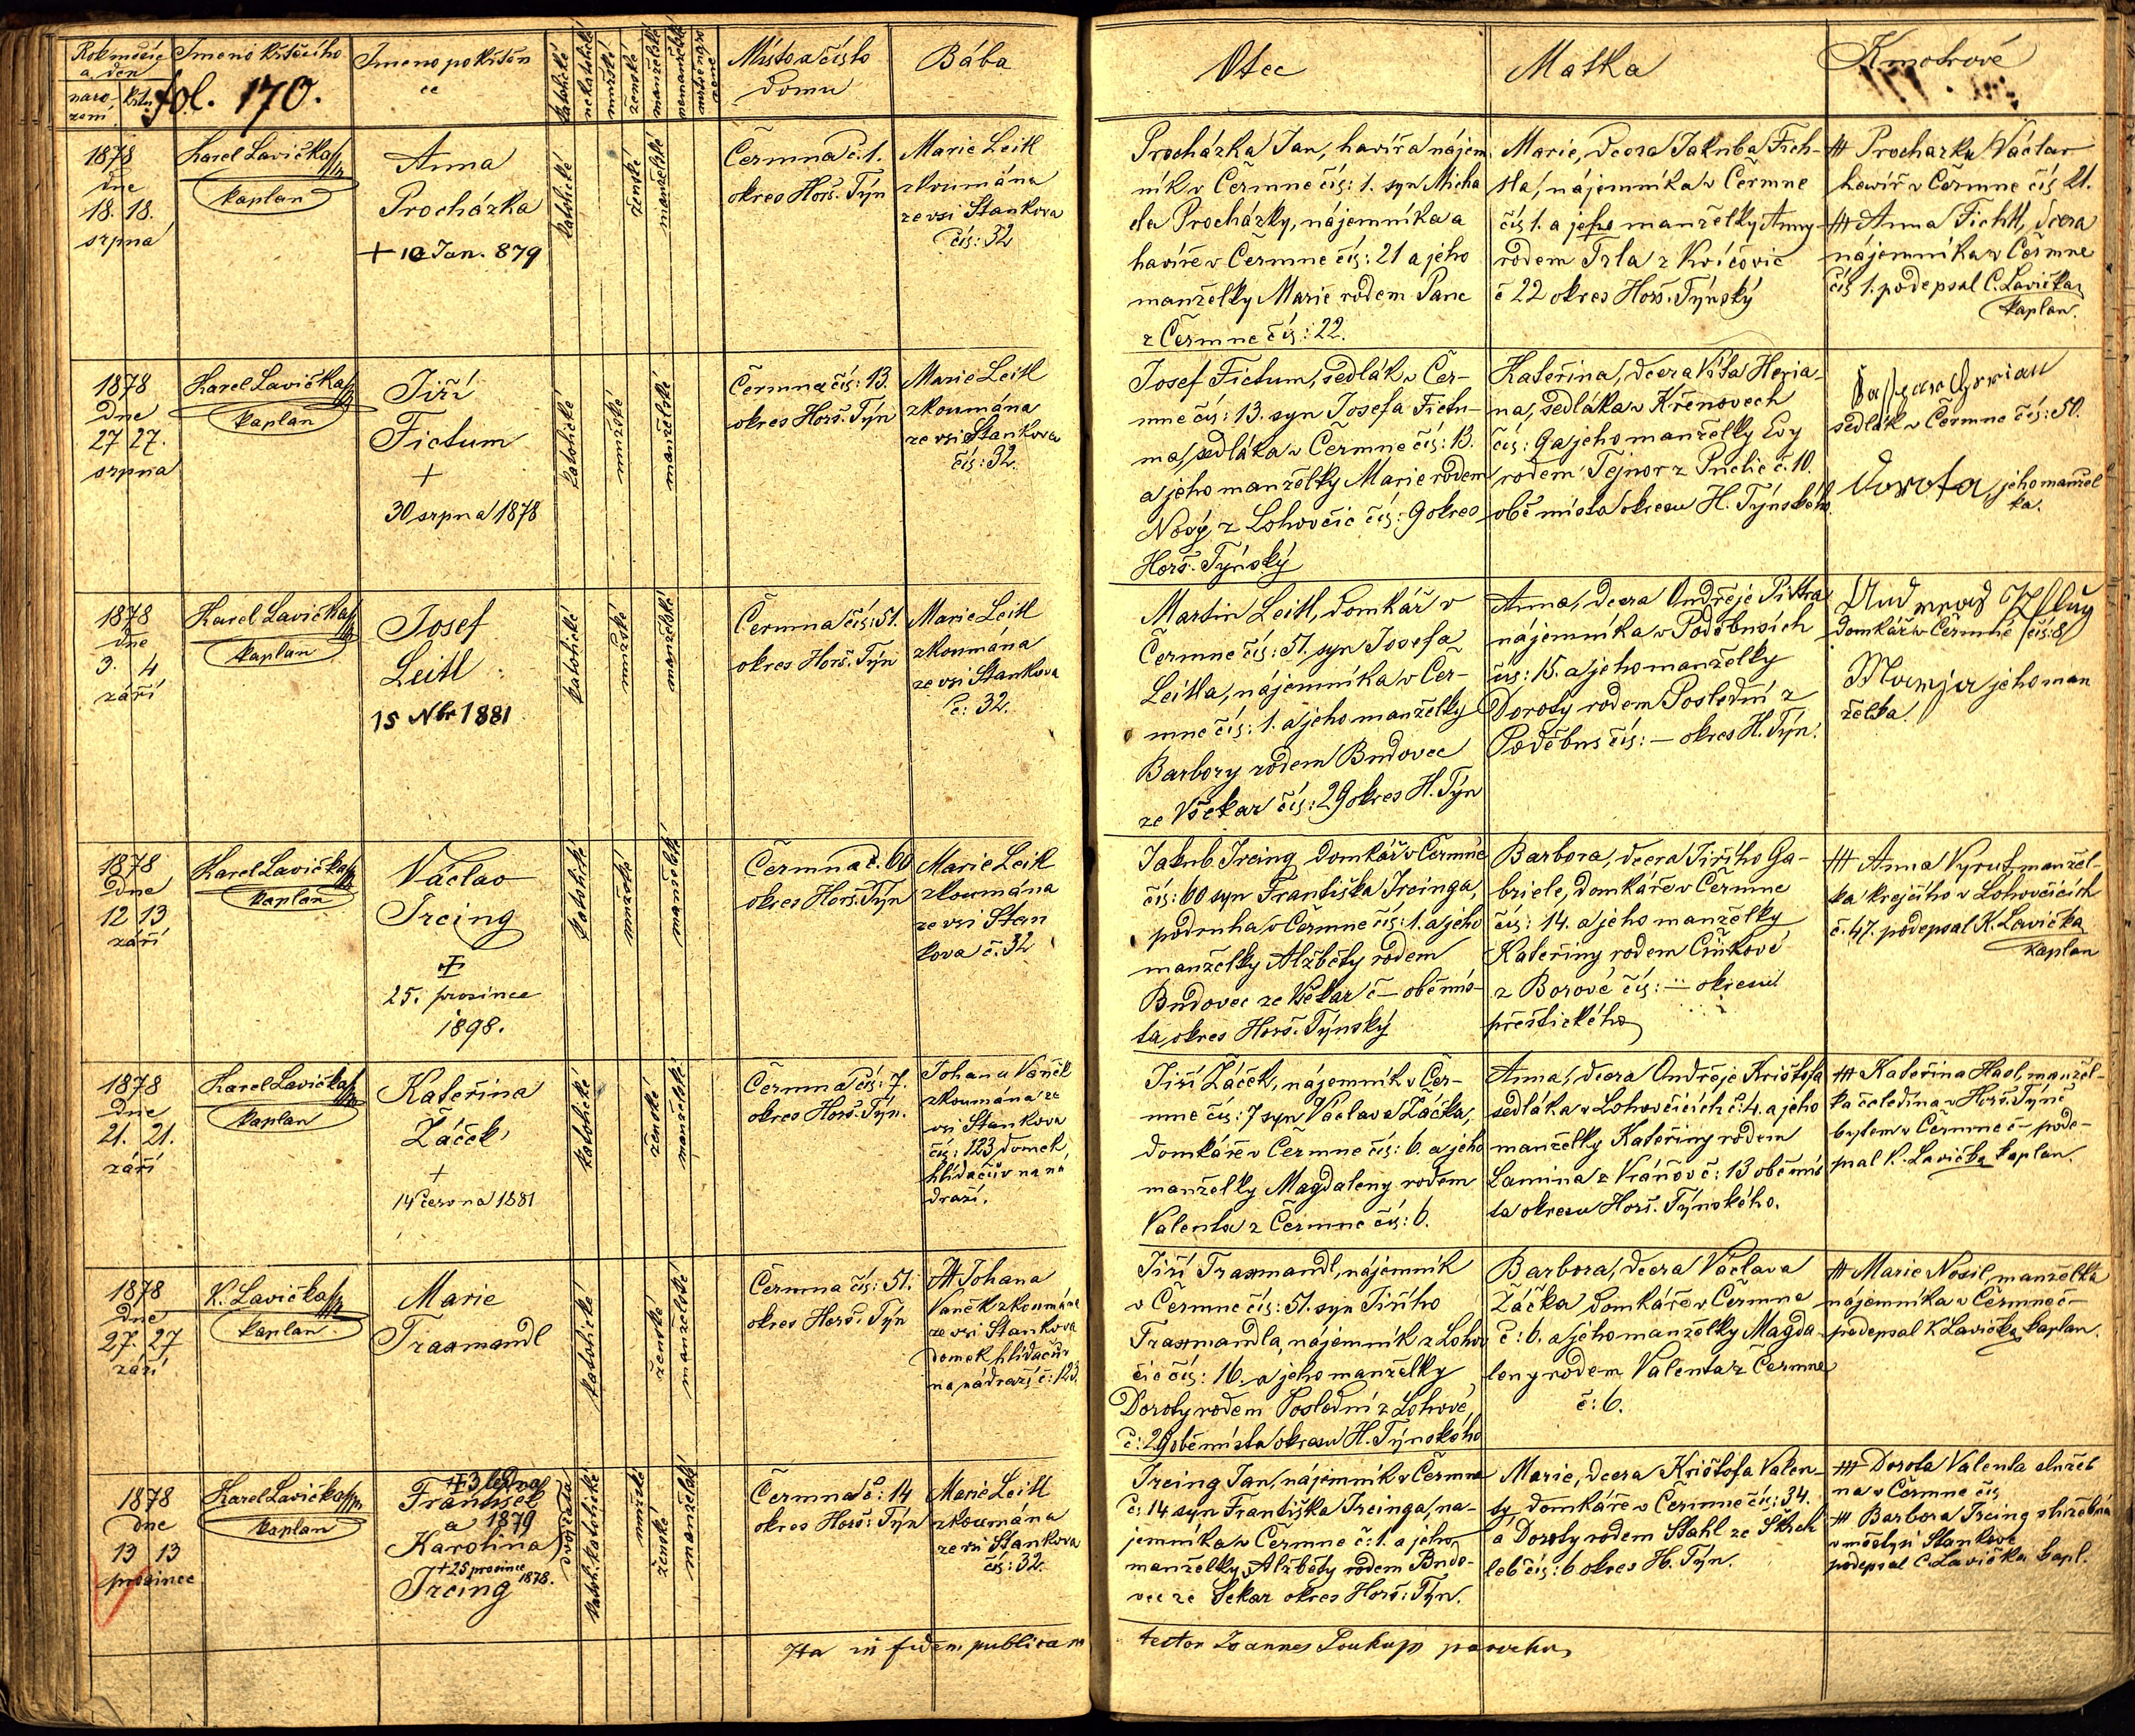 Rok měsíc a den
naro zení
křtu
Jmeno křtícího
fol. 170.
Jmeno pokřtěn
ce
katolické
nekatolické
mužské
ženské
manželské
nemanželské
Místo a číslo
domu
Bába
Otec
Matka
Kmotrové
1878
dne
18. 18.
srpna
Karel Lavička
kaplan
Anna
Procházka
+ 10 Jan. 879
katolické
ženské
manželské
Čermna č. 1.
okres Horš. Týn
Marie Leitl
zkoumána
ze vsi Stankova
čís: 32
Procházka Jan, havíř a nájem
ník v Čermne čís: 1. syn Micha
ela Procházky, nájemníka a
havíře v Čermne čís: 21 a jeho
manželky Marie rodem Panc
z Čermne čís: 22.
Marie, dcera Jakuba Fich-
tla, nájemníka v Čermne
čís 1. a jeho manželky Anny
rodem Trla z Kvíčovic
č 22 okres Horš. Týnský
## Procházka Václav
havíř v Čermne čís 21.
## Anna Fichtl, dcera
nájemníka v Čermne
čís 1. podepsal C. Lavička
kaplan.
1878
Dne
27 27.
srpna
Karel Lavička
kaplan
Jiří
Fictum
+
30 srpna 1878
katolické
mužské
manželské
Čermna čís: 13.
okres Horš. Týn
Marie Leitl
zkoumána
ze vsi Stankova
čís: 32.
Josef Fictum, sedlák v Čer-
mne čís: 13. syn Josefa Fictu-
ma, sedláka v Čermne čís: 13.
a jeho manželky Marie rodem
Nový z Lohovčic čís: 9 okres
Horš. Týnský
Kateřina, dcera Víta Heria-
na, sedláka v Křenovech
čís: 9 a jeho manželky Evy
rodem Tejnor z Puclic č. 10.
obě místa okresu H. Týnského.
sedlák v Čermne čís: 50.
Dorota, jeho manžel
ka.
1878
dne
3. 4
září
Karel Lavička
kaplan
Josef
Leitl
15 Nbr 1881
katolické
mužské
manželské
Čermna čís: 51.
okres Horš. Týn
Marie Leitl
zkoumána
ze vsi Stankova
č: 32.
Martin Leitl, domkář v
Čermne čís: 51. syn Josefa
Leitla, nájemníka v Čer-
mne čís: 1. a jeho manželky
Barbory rodem Budovec
ze Všekar čís: 29 okres H. Týn
Anna, dcera Ondřeje Pittra
nájemníka v Poděbusích
čís: 15. a jeho manželky
Doroty rodem Poslední z
Poděbus čís: – okres H. Týn.
Andreas Pflug
domkář v Čermné čís: 8
Marija jeho man
želka.
1878
Dne
12 13
září
Karel Lavička
kaplan
Václav
Ircing
+
25. prosince
1898.
katolické
mužské
manželské
Čermna č. 60
okres Horš. Týn
Marie Leitl
zkoumána
ze vsi Stan
kova č. 32
Jakub Ircing domkář v Čermne
čís: 60 syn Františka Ircinga,
podruha v Čermne čís: 1. a jeho
manželky Alžběty rodem
Budovec ze Všekar č – obě mís-
ta okres Horš. Týnský
Barbora, dcera Jiřího Ga-
briele, domkáře v Čermne
čís: 14. a jeho manželky
Kateřiny rodem Cinkové
z Borové čís: – okresu
přeštického
## Anna Vyrut, manžel-
ka krejčího v Lohovčicích
č. 47. podepsal K. Lavička
kaplan
1878
Dne
21. 21.
září
Karel Lavička
kaplan
Kateřina
Žáček
+
14 června 1881
katolické
ženské
manželské
Čermna čís: 7.
okres Horš. Týn.
Johana Váněk
zkoumána ze
vsi Stankova
čís: 123 domek
hlídačův na ná
draží.
Jiří Žáček, nájemník v Čer-
mne čís: 7 syn Václava Žáčka,
domkáře v Čermne čís: 6. a jeho
manželky Magdaleny rodem
Valenta z Čermne čís: 6.
Anna, dcera Ondřeje Krištofa
sedláka v Lohovčicích č: 4. a jeho
manželky Kateřiny rodem
Lamina z Vránov č: 13 obě mís
ta okresu Horš. Týnského.
## Kateřina Haol, manžel-
ka čeledína v Horš. Týně
bytem v Čermne č – pode-
psal K. Lavička kaplan.
1878
dne
27. 27
září
K. Lavička
kaplan
Marie
Traxmandl
katolické
ženské
manželské
Čermna čís: 51.
okres Horš. Týn
## Johana
Vaněk zkoumána
ze vsi Stankova
domek hlídačův
na nádraží č: 123.
Jiří Traxmandl, nájemník
v Čermne čís: 51. syn Jiřího
Traxmandla, nájemník z Lohov
čic čís: 16. a jeho manželky
Doroty rodem Poslední z Lohové,
č: 29 obě místa okresu H. Týnského
Barbora, dcera Václava
Žáčka domkáře v Čermne
č: 6. a jeho manželky Magda
leny rodem Valenta z Čermne
č: 6.
## Marie Nosil, manželka
nájemníka v Čermne č –
podepsal K Lavička kaplan.
1878
dne
13 13
prosince
Karel Lavička
kaplan
+ 3 ledna
František
a 1879
Karolina
+ 25 prosince 1878.
Ircing
dvojčata
katol. katolické
mužské
ženské
manželské
Čermna č: 14
okres Horš. Týn
Marie Leitl
zkoumána
ze vsi Stankova
čís: 32.
Ircing Jan, nájemník v Čermne
č: 14 syn Františka Ircinga, ná-
jemníka v Čermne č: 1. a jeho
manželky Alžběty rodem Budo-
vec ze Sekar okres Horš. Týn.
Marie, dcera Krištofa Valen-
ty domkáře v Čermne čís: 34.
a Doroty rodem Stahl ze Skch
leb čís: 6 okres H. Týn.
## Dorota Valenta služeb
na v Čermne čís
## Barbora Ircing služebná
v městysi Stankově
podepsal C. Lavička kapl.
Ita in fidem publicam
testor Joannes Soukup parochus